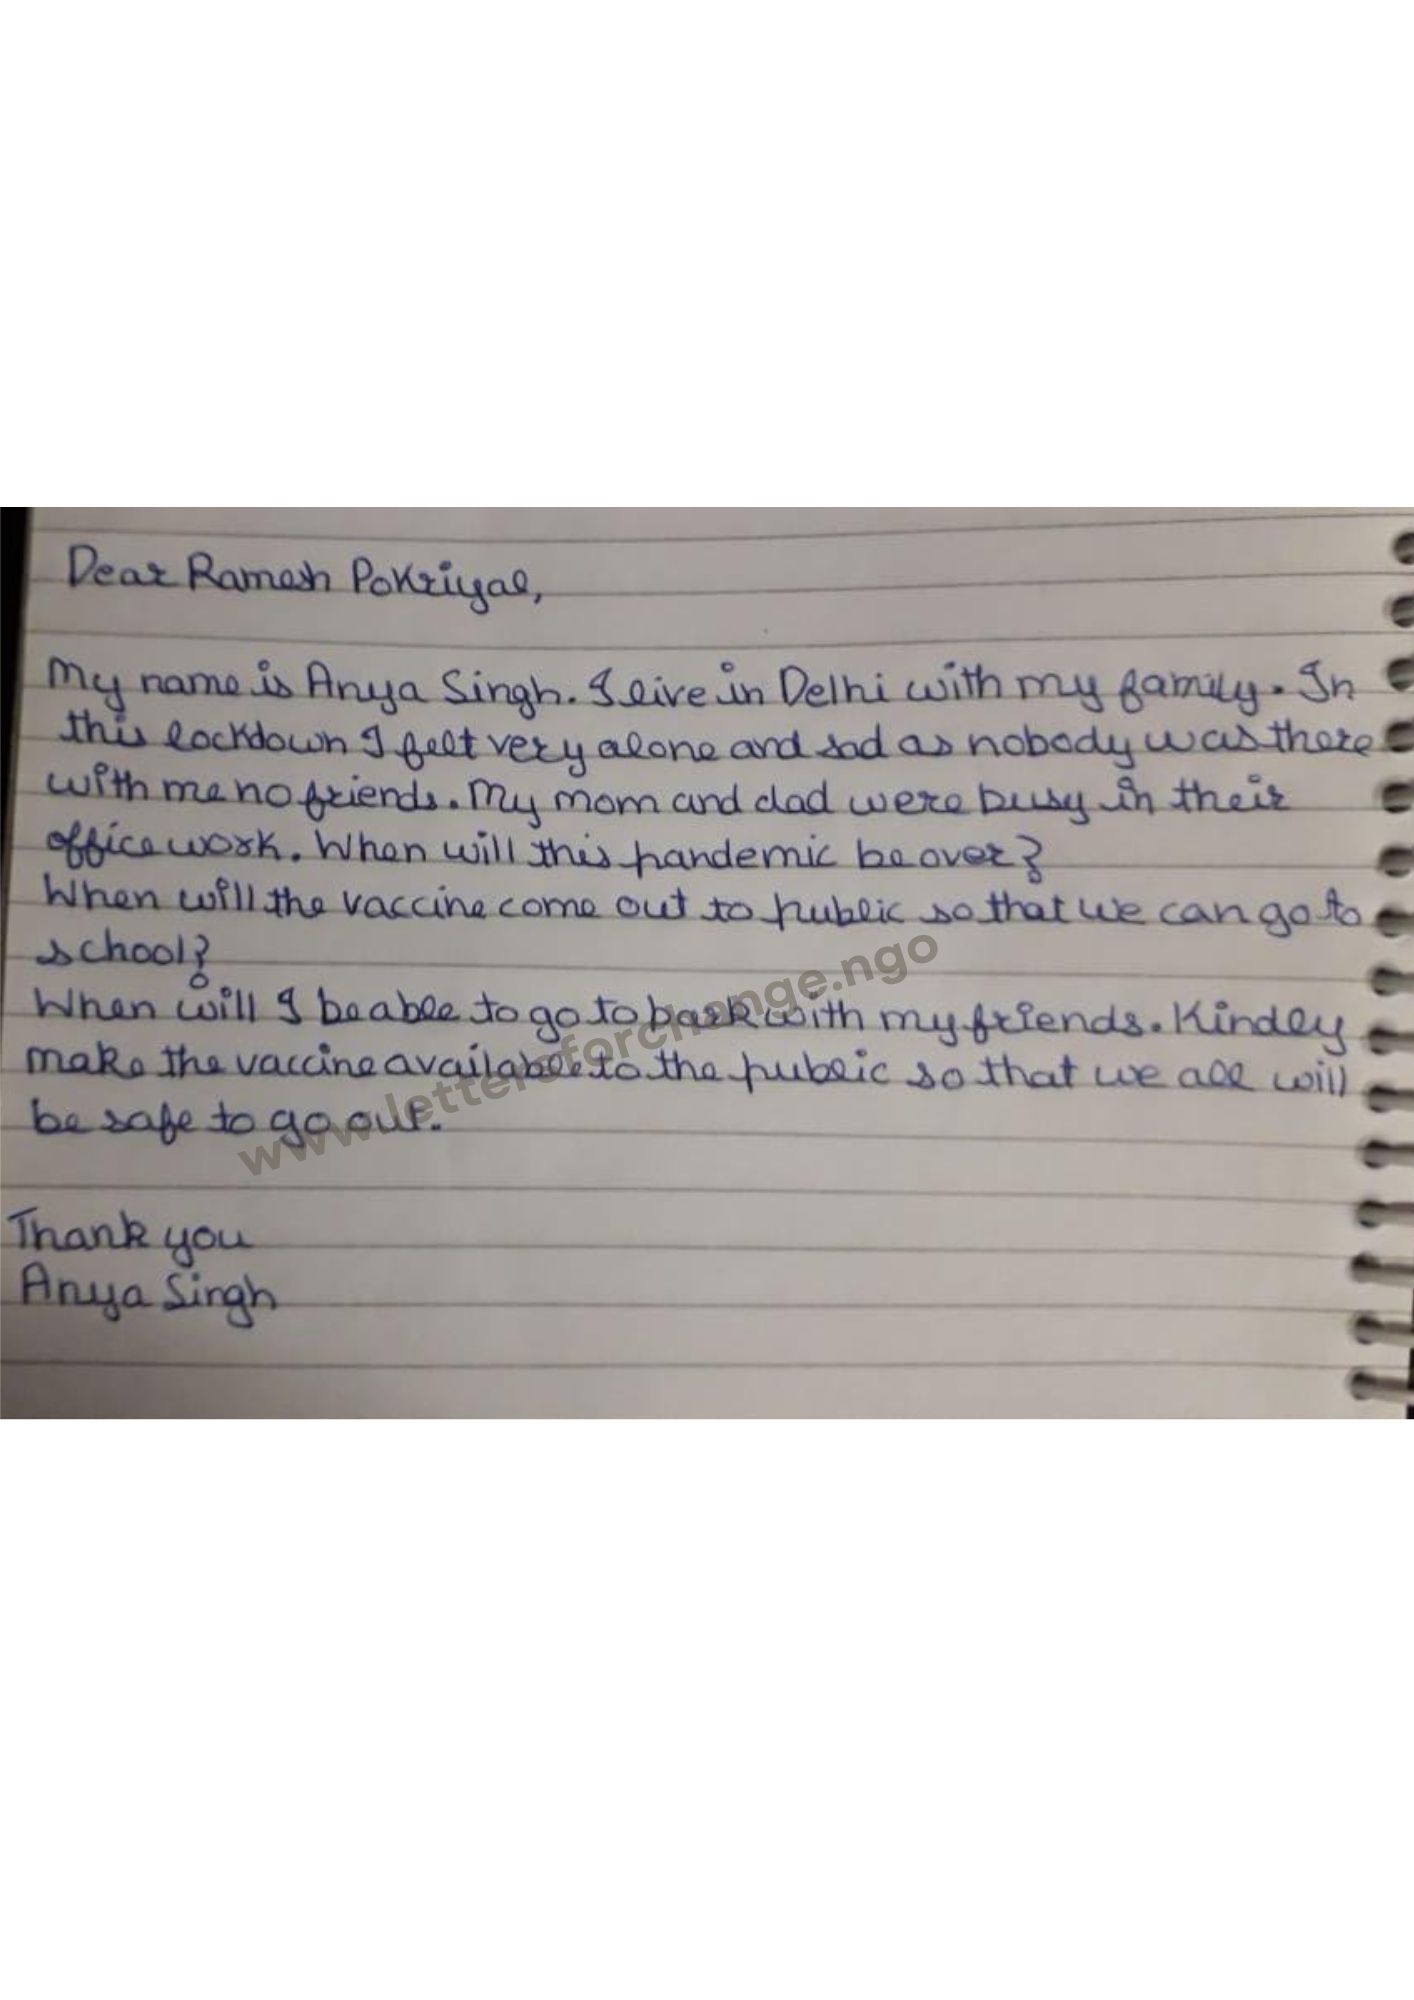 Dear Ramesh Pokriyal,
My name is Anya Singh. I live in Delhi with my family. In
this lockdown I felt very alone and sad as nobody was there
with me no friends. My mom and dad were busy in their
office work. When will this pandemic be over?
When will the vaccine come out to public so that we can go to
school?
When will I be able to go to park with my friends. Kindly
make the vaccine available to the public so that we all will
be safe to go out.
Thank you
Anya Singh
www.lettersforchange.ngo